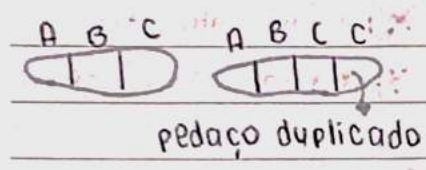 A B C A B C C
pedaço duplicado